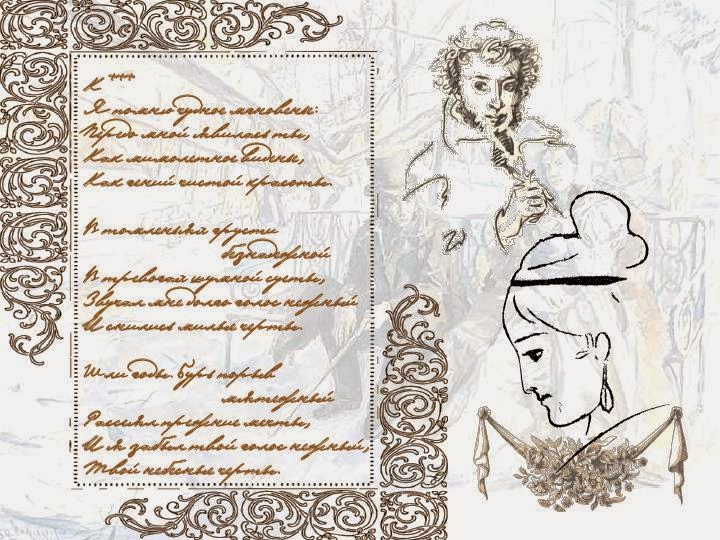 К ***
Я помню чудное мгновенье:
Передо мной явилась ты,
Как мимолетное виденье,
Как гений чистой красоты.
В томленьях грусти
безнадежной
В тревогах шумной суеты,
Звучал мне долго голос нежный
И снились милые черты.
Шли годы. Бурь порыв
мятежный
Рассеял прежние мечты,
И я забыл твой голос нежный,
Твои небесные черты.